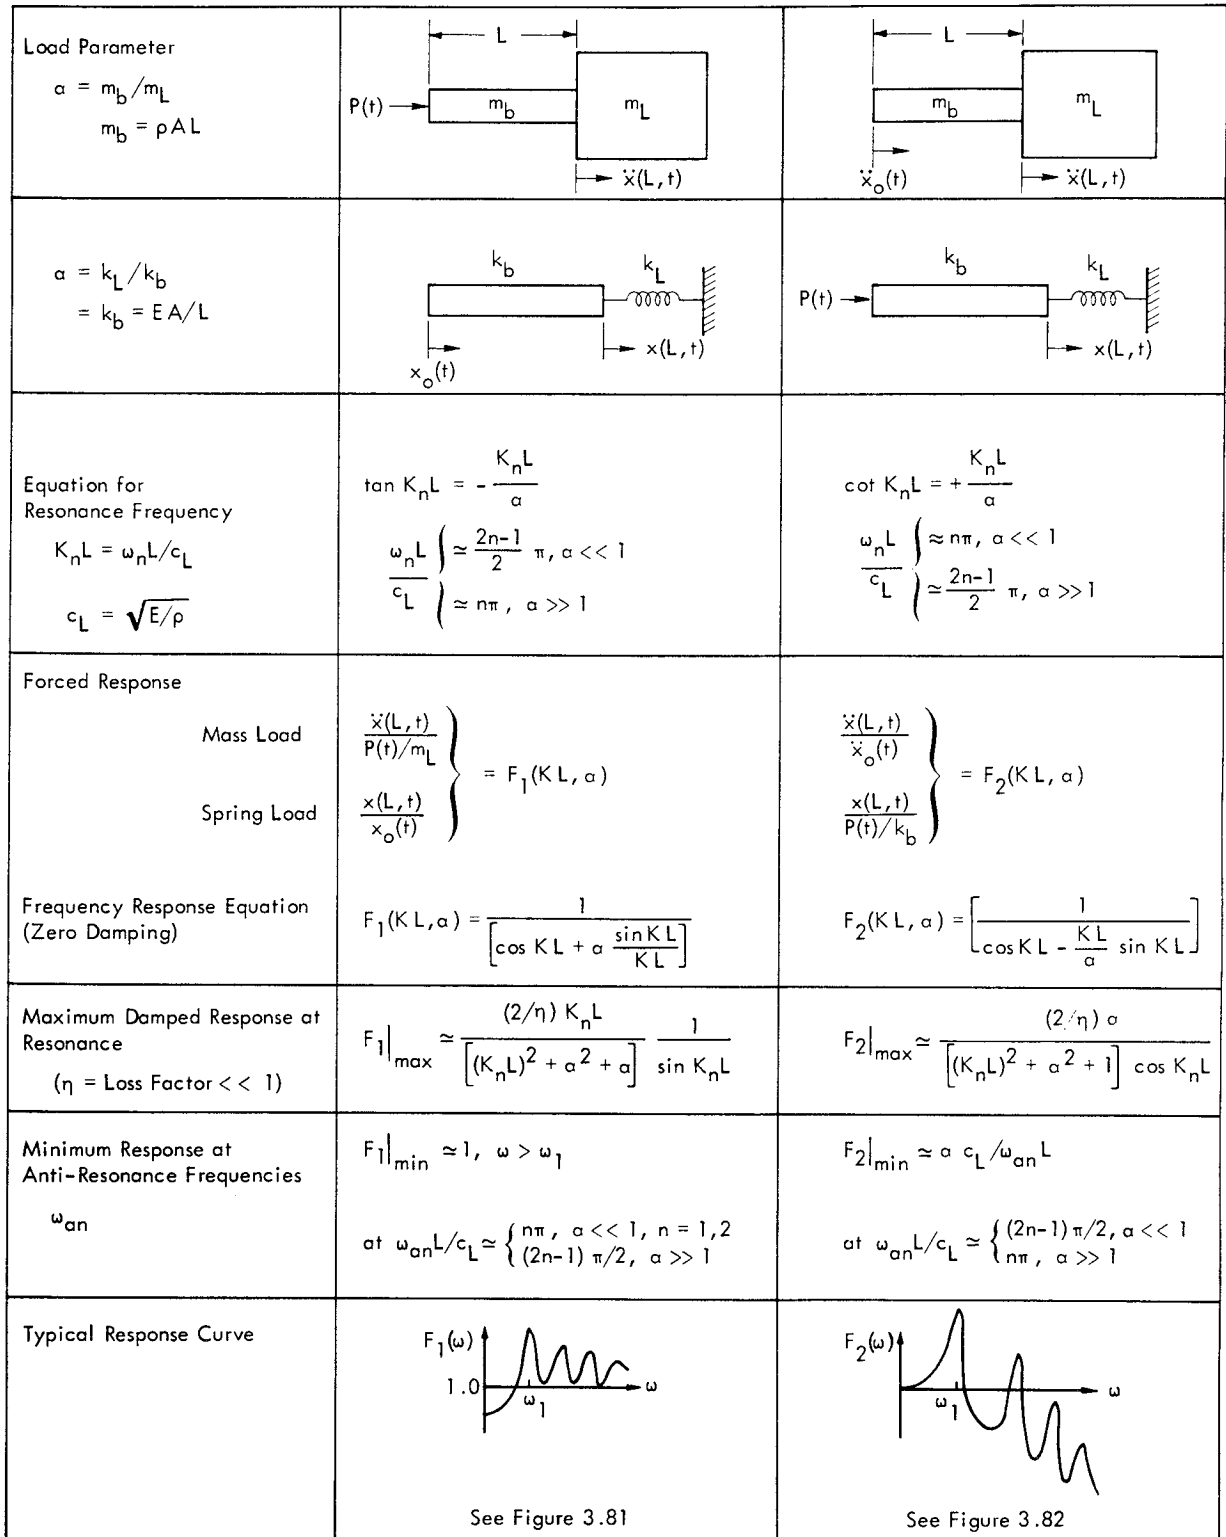 Load Parameter
α = m_b/m_L
m_b = ρAL
L
P(t)
m_b
m_L
ẍ(L,t)
L
m_b
m_L
ẍ_o(t)
ẍ(L,t)
α = k_L/k_b
= k_b = EA/L
k_b
k_L
x_o(t)
x(L,t)
k_b
k_L
P(t)
x(L,t)
Equation for
Resonance Frequency
K_nL = ω_nL/c_L
c_L = √E/ρ
tan K_nL = - K_nL/α
ω_nL/c_L { ≃ (2n-1)/2 π, α << 1
≃ nπ, α >> 1
cot K_nL = + K_nL/α
ω_nL/c_L { ≈ nπ, α << 1
≃ (2n-1)/2 π, α >> 1
Forced Response
Mass Load
Spring Load
ẍ(L,t)/P(t)/m_L
x(L,t)/x_o(t)
} = F_1(KL, α)
ẍ(L,t)/ẍ_o(t)
x(L,t)/P(t)/k_b
} = F_2(KL, α)
Frequency Response Equation
(Zero Damping)
F_1(KL,α) = 1/[cos KL + α sin KL/KL]
F_2(KL, α) = [1/cos KL - KL/α sin KL]
Maximum Damped Response at
Resonance
(η = Loss Factor << 1)
F_1|max ≃ (2/η) K_nL/[(K_nL)² + α² + α] 1/sin K_nL
F_2|max ≃ (2/η) α/[(K_nL)² + α² + 1] cos K_nL
Minimum Response at
Anti-Resonance Frequencies
ω_an
F_1|min ≃ 1, ω > ω_1
at ω_anL/c_L ≃ { nπ, α << 1, n = 1,2
(2n-1) π/2, α >> 1
F_2|min ≃ α c_L/ω_anL
at ω_anL/c_L ≃ { (2n-1) π/2, α << 1
nπ, α >> 1
Typical Response Curve
F_1(ω)
1.0
ω_1
ω
See Figure 3.81
F_2(ω)
ω_1
ω
See Figure 3.82